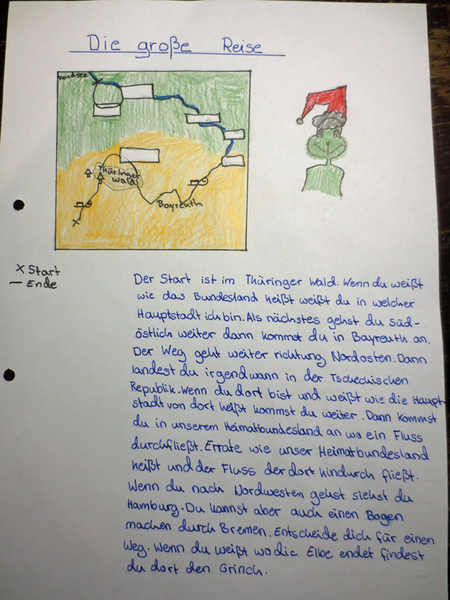 Die große Reise
Nordsee
Thüringer
Wald
Bayreuth
X Start
— Ende
Der Start ist im Thüringer Wald. Wenn du weißt
wie das Bundesland heißt weißt du in welcher
Hauptstadt ich bin. Als nächstes gehst du süd-
östlich weiter dann kommst du in Bayreuth an.
Der Weg geht weiter richtung Nordosten. Dann
landest du irgendwann in der Tschechischen
Republik. Wenn du dort bist und weißt wie die Haup-
stadt von dort heißt kommst du weiter. Dann kommst
du in unserem Heimatbundesland an wo ein Fluss
durchfließt. Errate wie unser Heimatbundesland
heißt und der Fluss der dort hindurch fließt.
Wenn du nach Nordwesten gehst siehst du
Hamburg. Du kannst aber auch einen Bogen
machen durch Bremen. Entscheide dich für einen
Weg. Wenn du weißt wo die Elbe endet findest
du dort den Grinch.